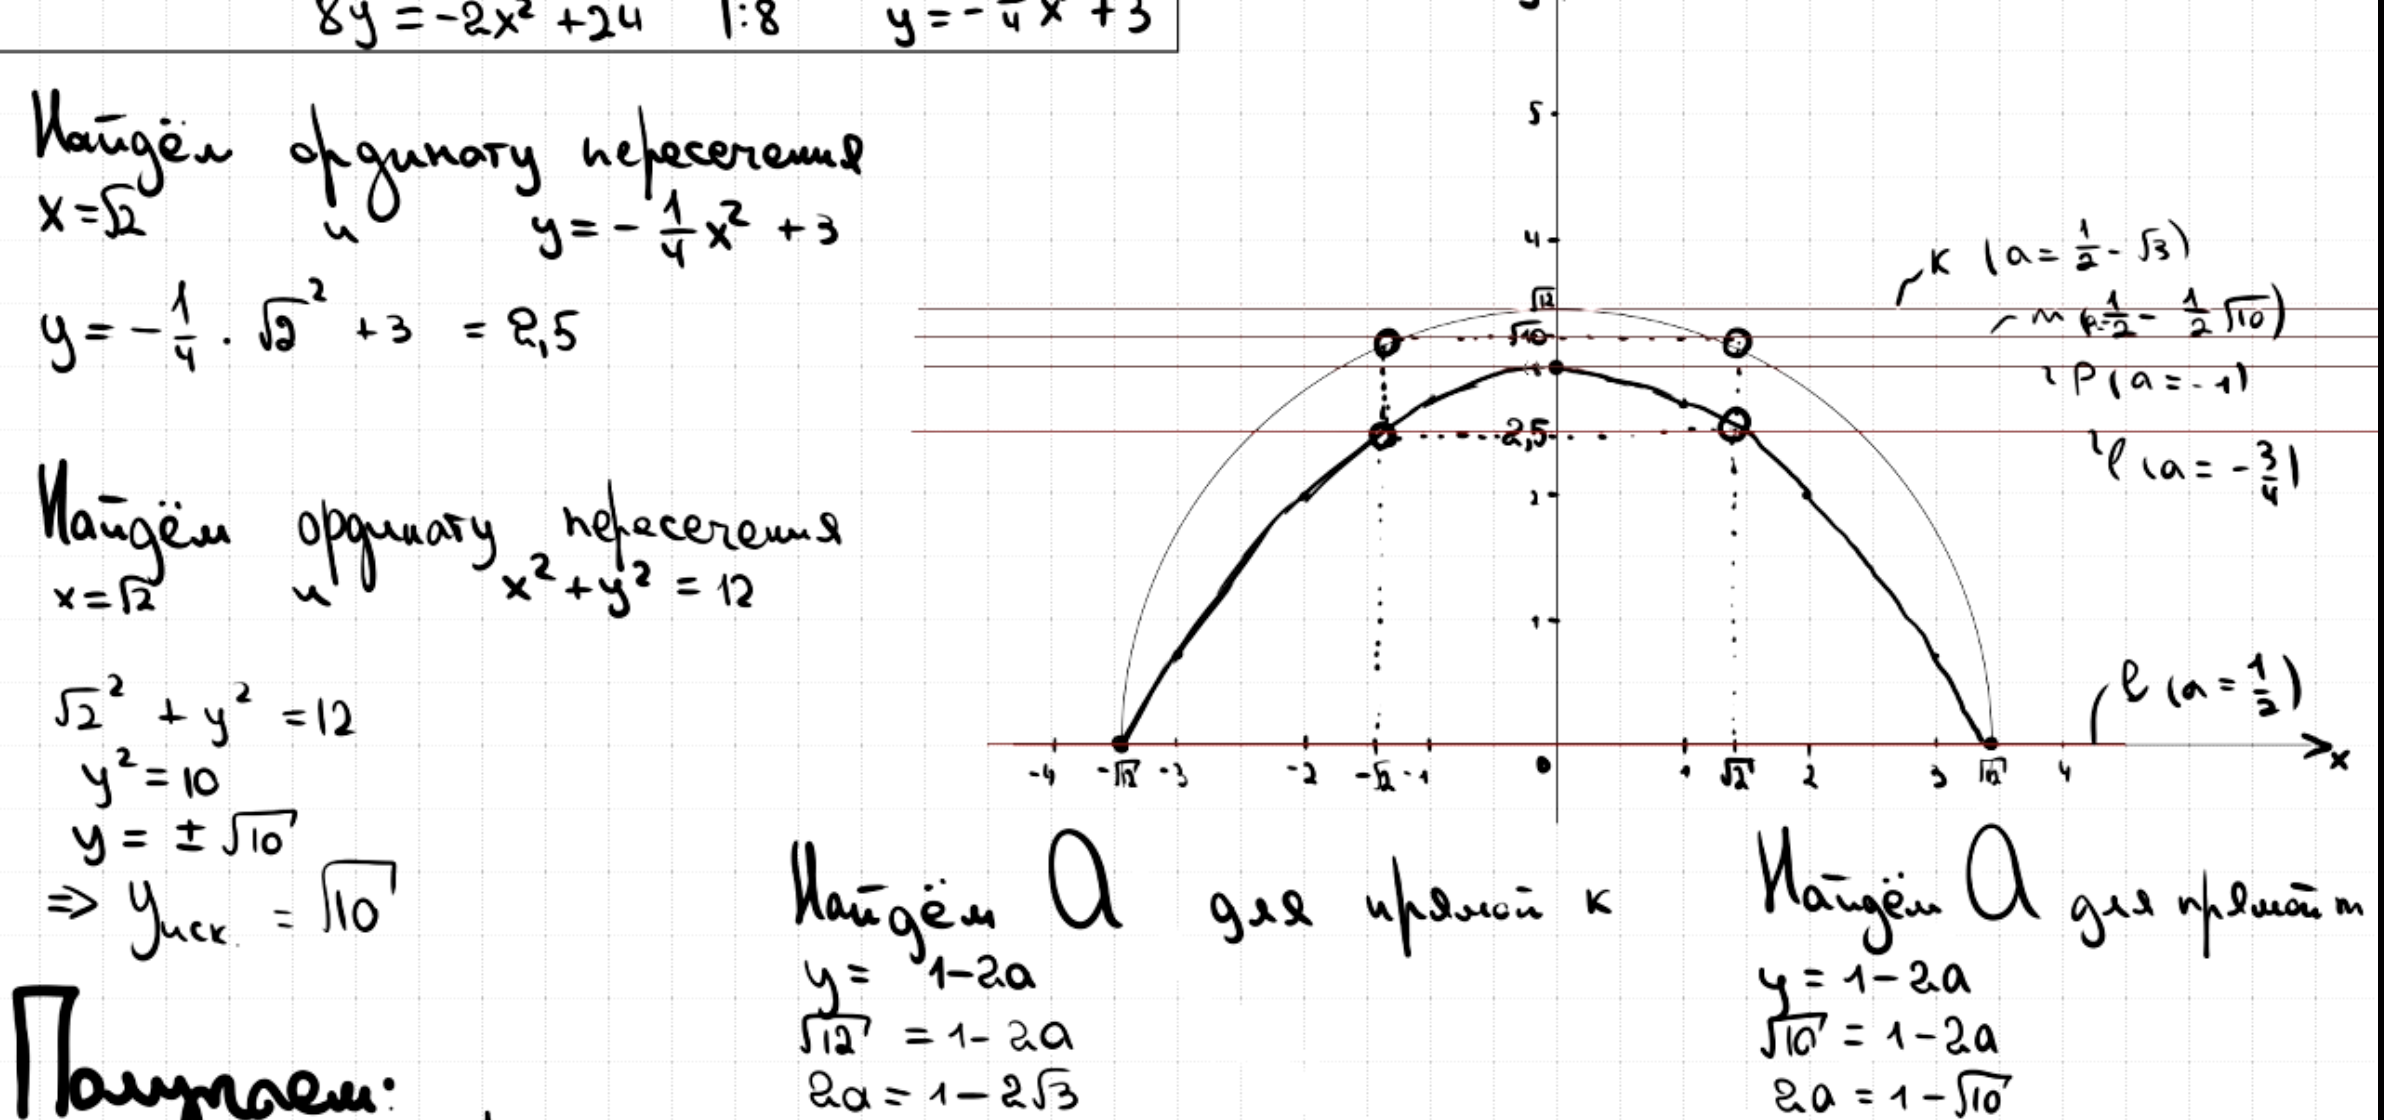 8y = -2x² + 24 |:8 y = -1/4 x² + 3
Найдём ординату пересечения
x = √2 и y = - 1/4 x² + 3
y = - 1/4 · √2² + 3 = 2,5
Найдём ординату пересечения
x = √2 и x² + y² = 12
√2² + y² = 12
y² = 10
y = ± √10
⇒ yиск. = √10
Получаем:
5
4
√12
√10
2,5
2
1
-4 -√12 -3 -2 -√2 -1 0 1 √2 2 3 √12 4 x
к (a = 1/2 - √3)
m (a = 1/2 - 1/2 √10)
p (a = -1)
l (a = -3/4)
l (a = 1/2)
Найдём a для прямой к
y = 1 - 2a
√12 = 1 - 2a
2a = 1 - 2√3
Найдём a для прямой m
y = 1 - 2a
√10 = 1 - 2a
2a = 1 - √10